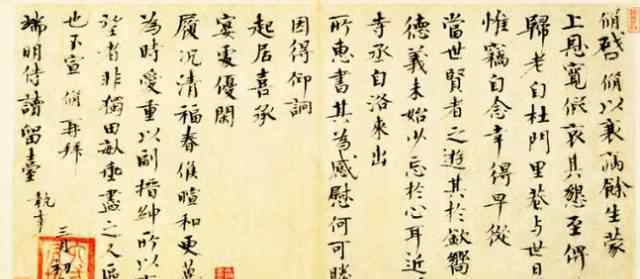 脩啓脩以衰病餘生蒙
上恩寬假哀其懇至俾
歸老自杜門里巷与世日
惟竊自念幸得早從
當世賢者之遊其於欽嚮
德義未始少忘於心耳近
寺丞自洛來出
所惠書其為感慰何可勝
因得仰詢
起居喜承
宴處優閑
履況清福春候暄和更
為時愛重以副搢紳所以有
望者非獨田畝垂盡之人區
也不宣 脩再拜
三月初
端明侍讀留臺 執事